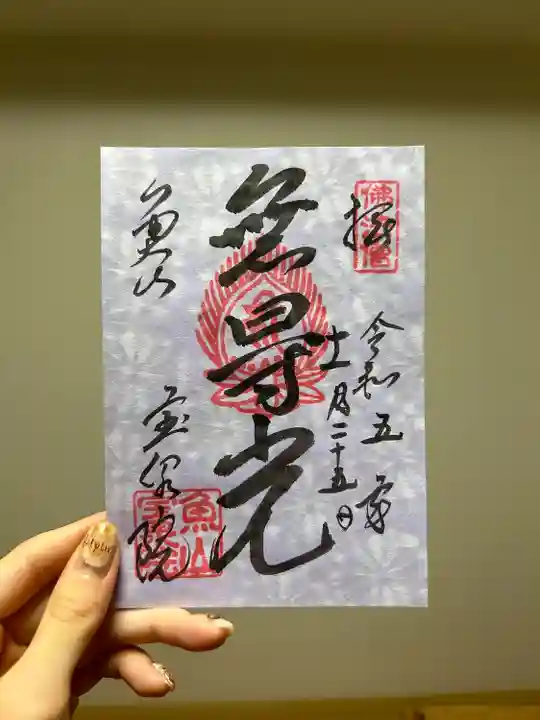 佛法僧
拝
令和五年
十一月二十五日
無㝵光
魚山
宝泉院
魚山